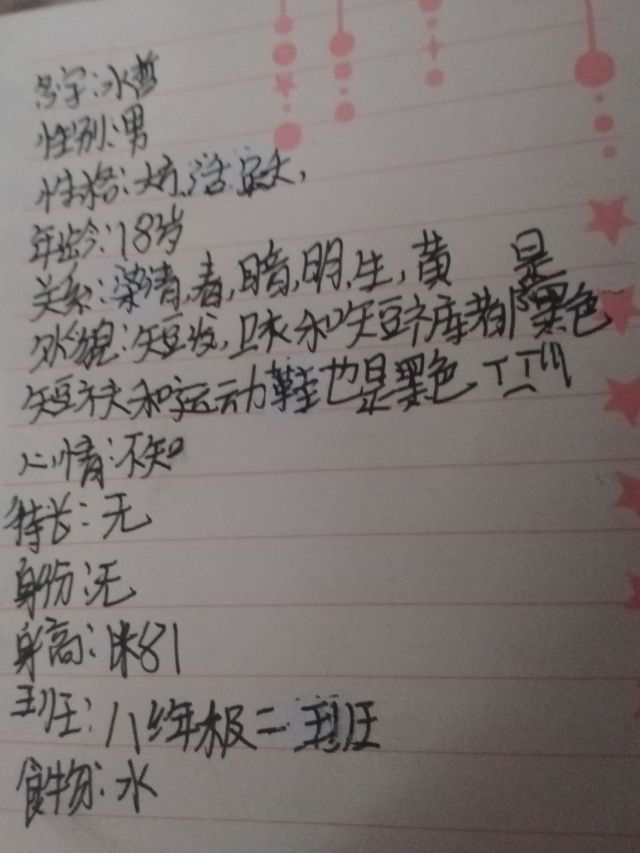 名字:水哲
性别:男
性格:活
年龄:18岁
关系:梁清,春,暗,明,生,黄 是
外貌:短发,卫衣和短裤都黑色
短袜和运动鞋也是黑色
心情:不知
特长:无
身份:无
身高:1米81
班:八年级二班
食物:水